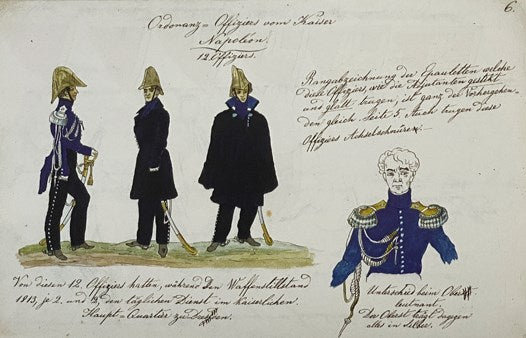 6.
Ordonanz=Offiziers vom Kaiser
Napoléon.
12 Offiziers.
Rangabzeichnung der Epauletten welche
diese Offiziers, wie die Adjutanten gestikt
und glatt trugen, ist ganz der Vorhergehen-
den gleich Seite 5. Auch trugen diese
Offiziers Achselschnüre.
Von diesen 12 Offiziers hatten, während den Waffenstillstand
1813, je 2. und 3 den täglichen Dienst im Kaiserlichen
Haupt=Quartier zu Dresden.
Unterschied beim Oberst
leutnant.
Der Oberst trägt dagegen
alles in Silber.